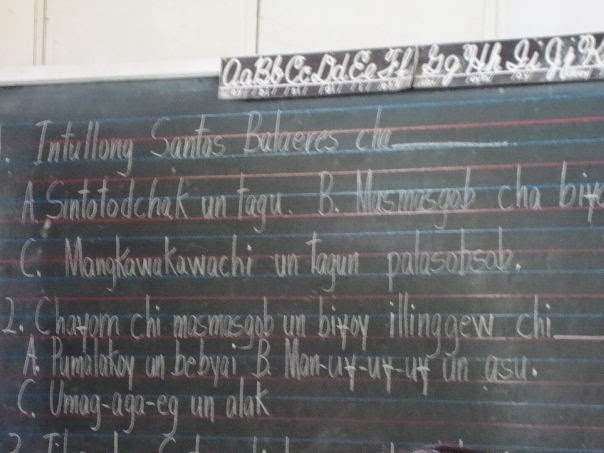 Aa Bb Cc Dd Ee Ff Gg Hh Ii Jj K
1. Intullong Santos Balaeres cha______
A. Sintotodchak un tagu. B. Masmasgob cha biɏo
C. Mangkawakawachi un tagun palasobsob.
2. Chaɏom chi masmasgob un biɏoy illinggew chi___
A. Pumalakoy un bebyai B. Man-uɏ-uɏ-uɏ un asu.
C. Umag-aga-eg un alak